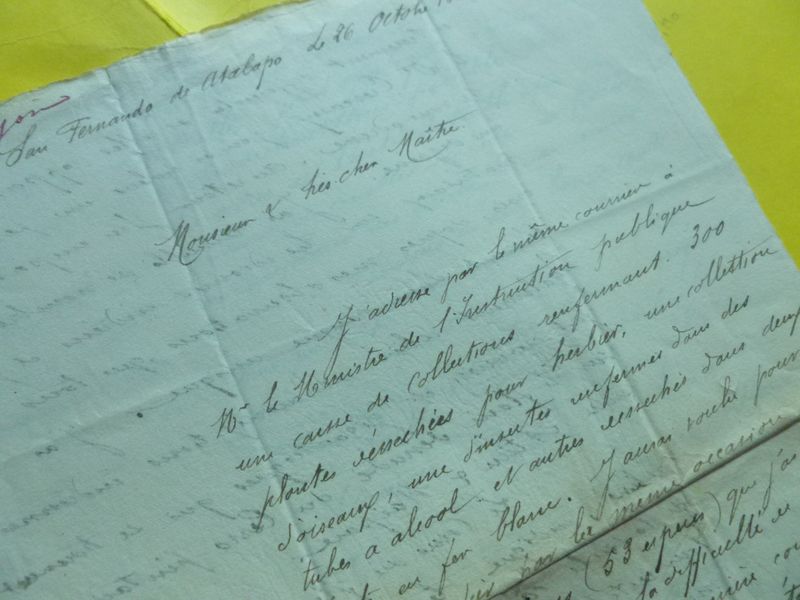 San Fernando de Atabapo le 26 Octobre
Monsieur & très cher Maître
J'adresse par le même courrier à
Mr le Ministre de l'Instruction publique
une caisse de collections renfermant. 300
plantes desséchées pour herbier, une collection
d'oiseaux, une d'insectes enfermés dans des
tubes à alcool et autres desséchés dans deux
en fer blanc. J'aurais voulu pour
par la même occasion
(53 espèces) que j'ai
la difficulté de